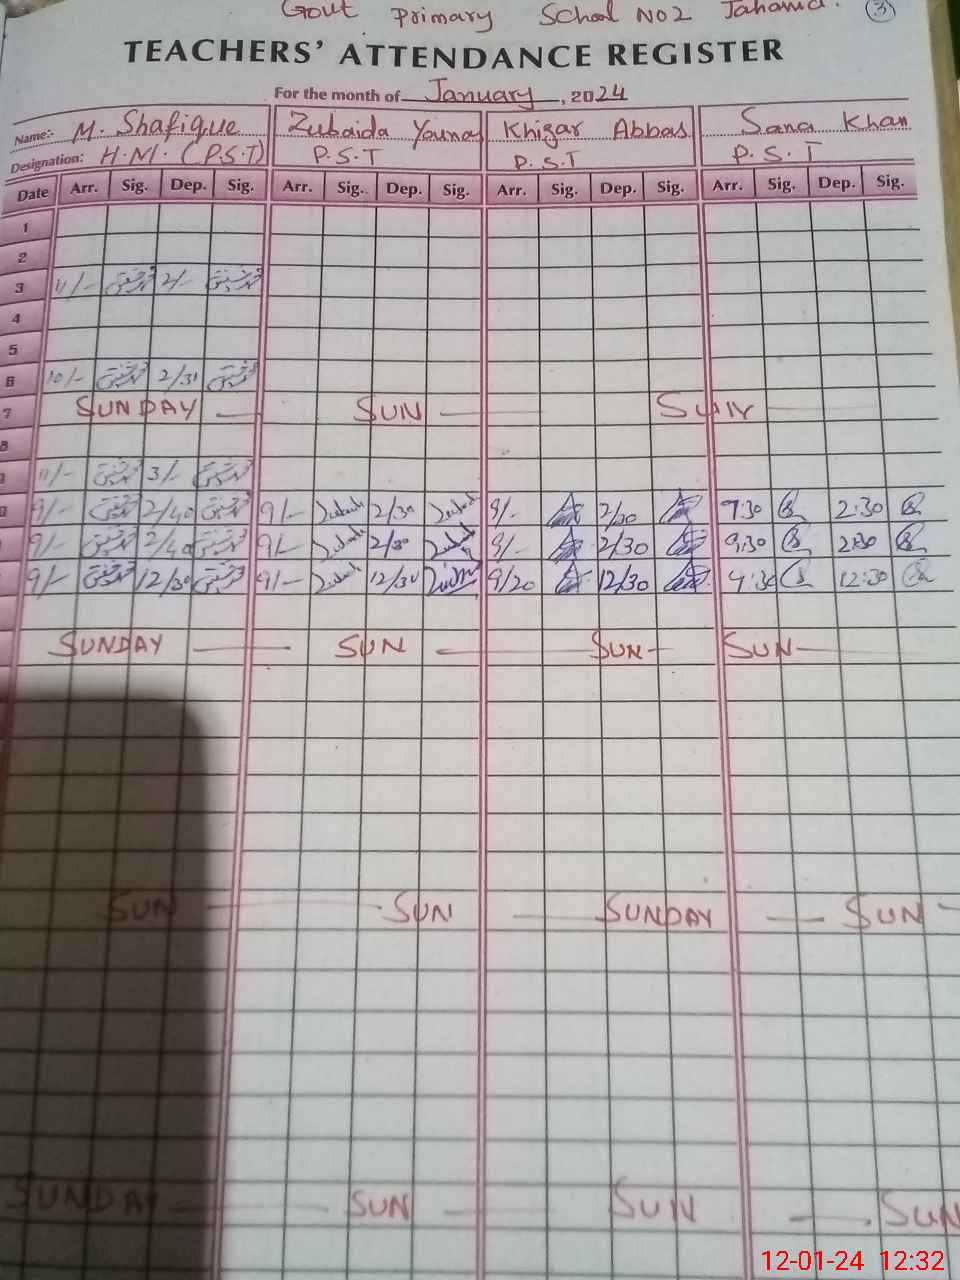 Govt Primary School No 2 3
TEACHERS' ATTENDANCE REGISTER
For the month of January, 2024
Name:- M. Shafique Zubaida Younas Khizar Abbas Sana Khan
Designation: H.M. (P.S.T) P.S.T P.S.T P.S.T
Date Arr. Sig. Dep. Sig. Arr. Sig. Dep. Sig. Arr. Sig. Dep. Sig. Arr. Sig. Dep. Sig.
1
2
3 11/- 2/-
4
5
6 10/- 2/30
7 SUNDAY SUN SUN
8
11/- 3/-
9/- 2/40 9/- 2/30 9/- 2/30 9:30 2:30
9/- 2/40 9/- 2/30 9/- 2/30 9:30 2:30
9/- 12/30 9/- 12/30 9/20 12/30 9:30 12:30
SUNDAY SUN SUN SUN
SUN SUN SUNDAY SUN
SUNDAY SUN SUN SUN
12-01-24 12:32